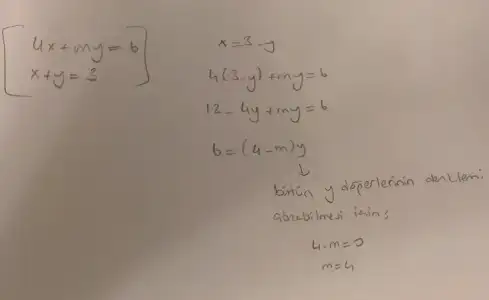 4x+my=6
x+y=3
x=3-y
4(3-y)+my=6
12-4y+my=6
6=(4-m)y
↓
bütün y değerlerinin denklemi
sağlayabilmesi için;
4-m=0
m=4